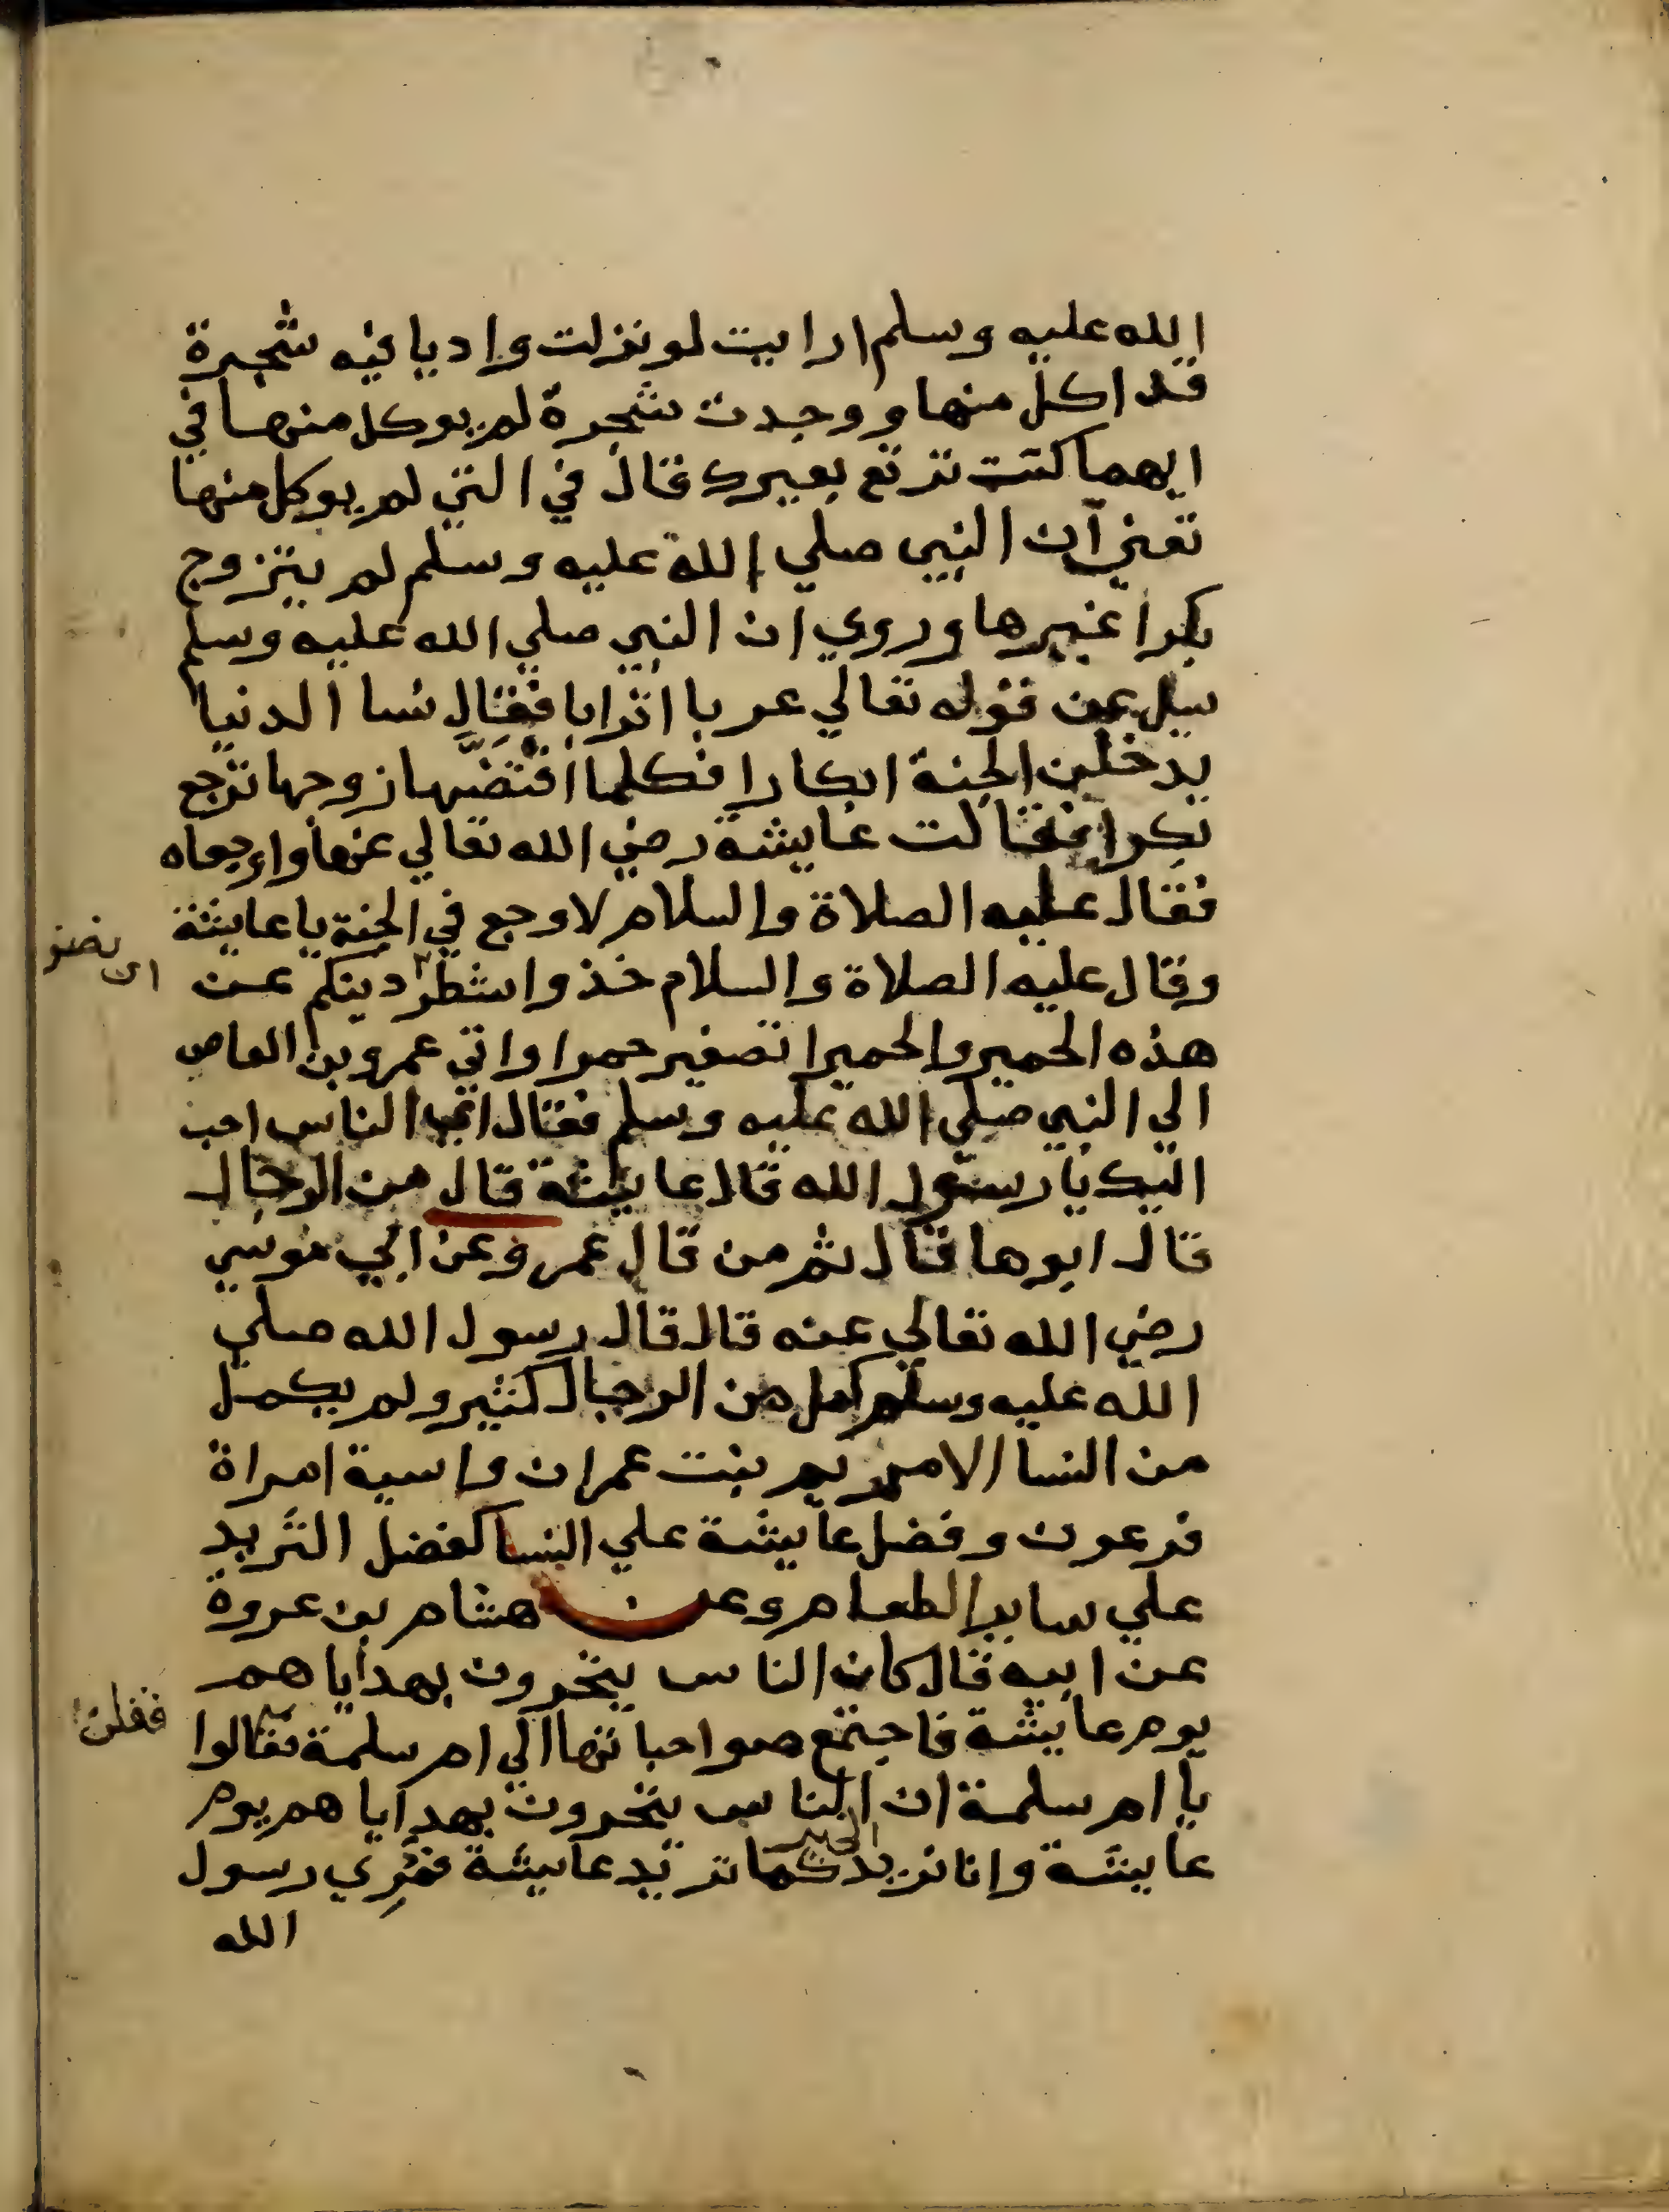 الله عليه وسلم ارايت لو نزلت واديا فيه شجرة
قد اكل منها ووجدت شجرة لم يوكل منها في
ايهما كنت ترتع بعيرك قال في التي لم يوكل منها
تعني ان النبي صلي الله عليه وسلم لم يتزوج
بكرا غيرها وروي ان النبي صلي الله عليه وسلم
سيل عن قوله تعالي عربا اترابا فقال نسا الدنيا
يدخلن الجنة ابكارا فكلما افتضها زوجها ترجع
بكرا فقالت عايشة رضي الله تعالي عنها واوجعاه
فقال عليه الصلاة والسلام لا وجع في الجنة يا عايشة
وقال عليه الصلاة والسلام خذوا شطر دينكم عن
اي نصف
هذه الحميرا والحميرا تصغير حمرا واتي عمرو بن العاص
الي النبي صلي الله عليه وسلم فقال اي الناس احب
اليك يا رسول الله قال عايشة قال من الرجال
قال ابوها قال ثم من قال عمر وعن ابي موسي
رضي الله تعالي عنه قال قال رسول الله صلي
الله عليه وسلم كمل من الرجال كثير ولم يكمل
من النسا الا مريم بنت عمران واسية امراة
فرعون وفضل عايشة علي النسا كفضل الثريد
علي ساير الطعام وعن هشام بن عروة
عن ابيه قال كان الناس يتحرون بهداياهم
يوم عايشة فاجتمع صواحباتها الي ام سلمة فقالوا
فقلن
يا ام سلمة ان الناس يتحرون بهداياهم يوم
عايشة وانا نريد الخير كما تريد عايشة فمري رسول
الله